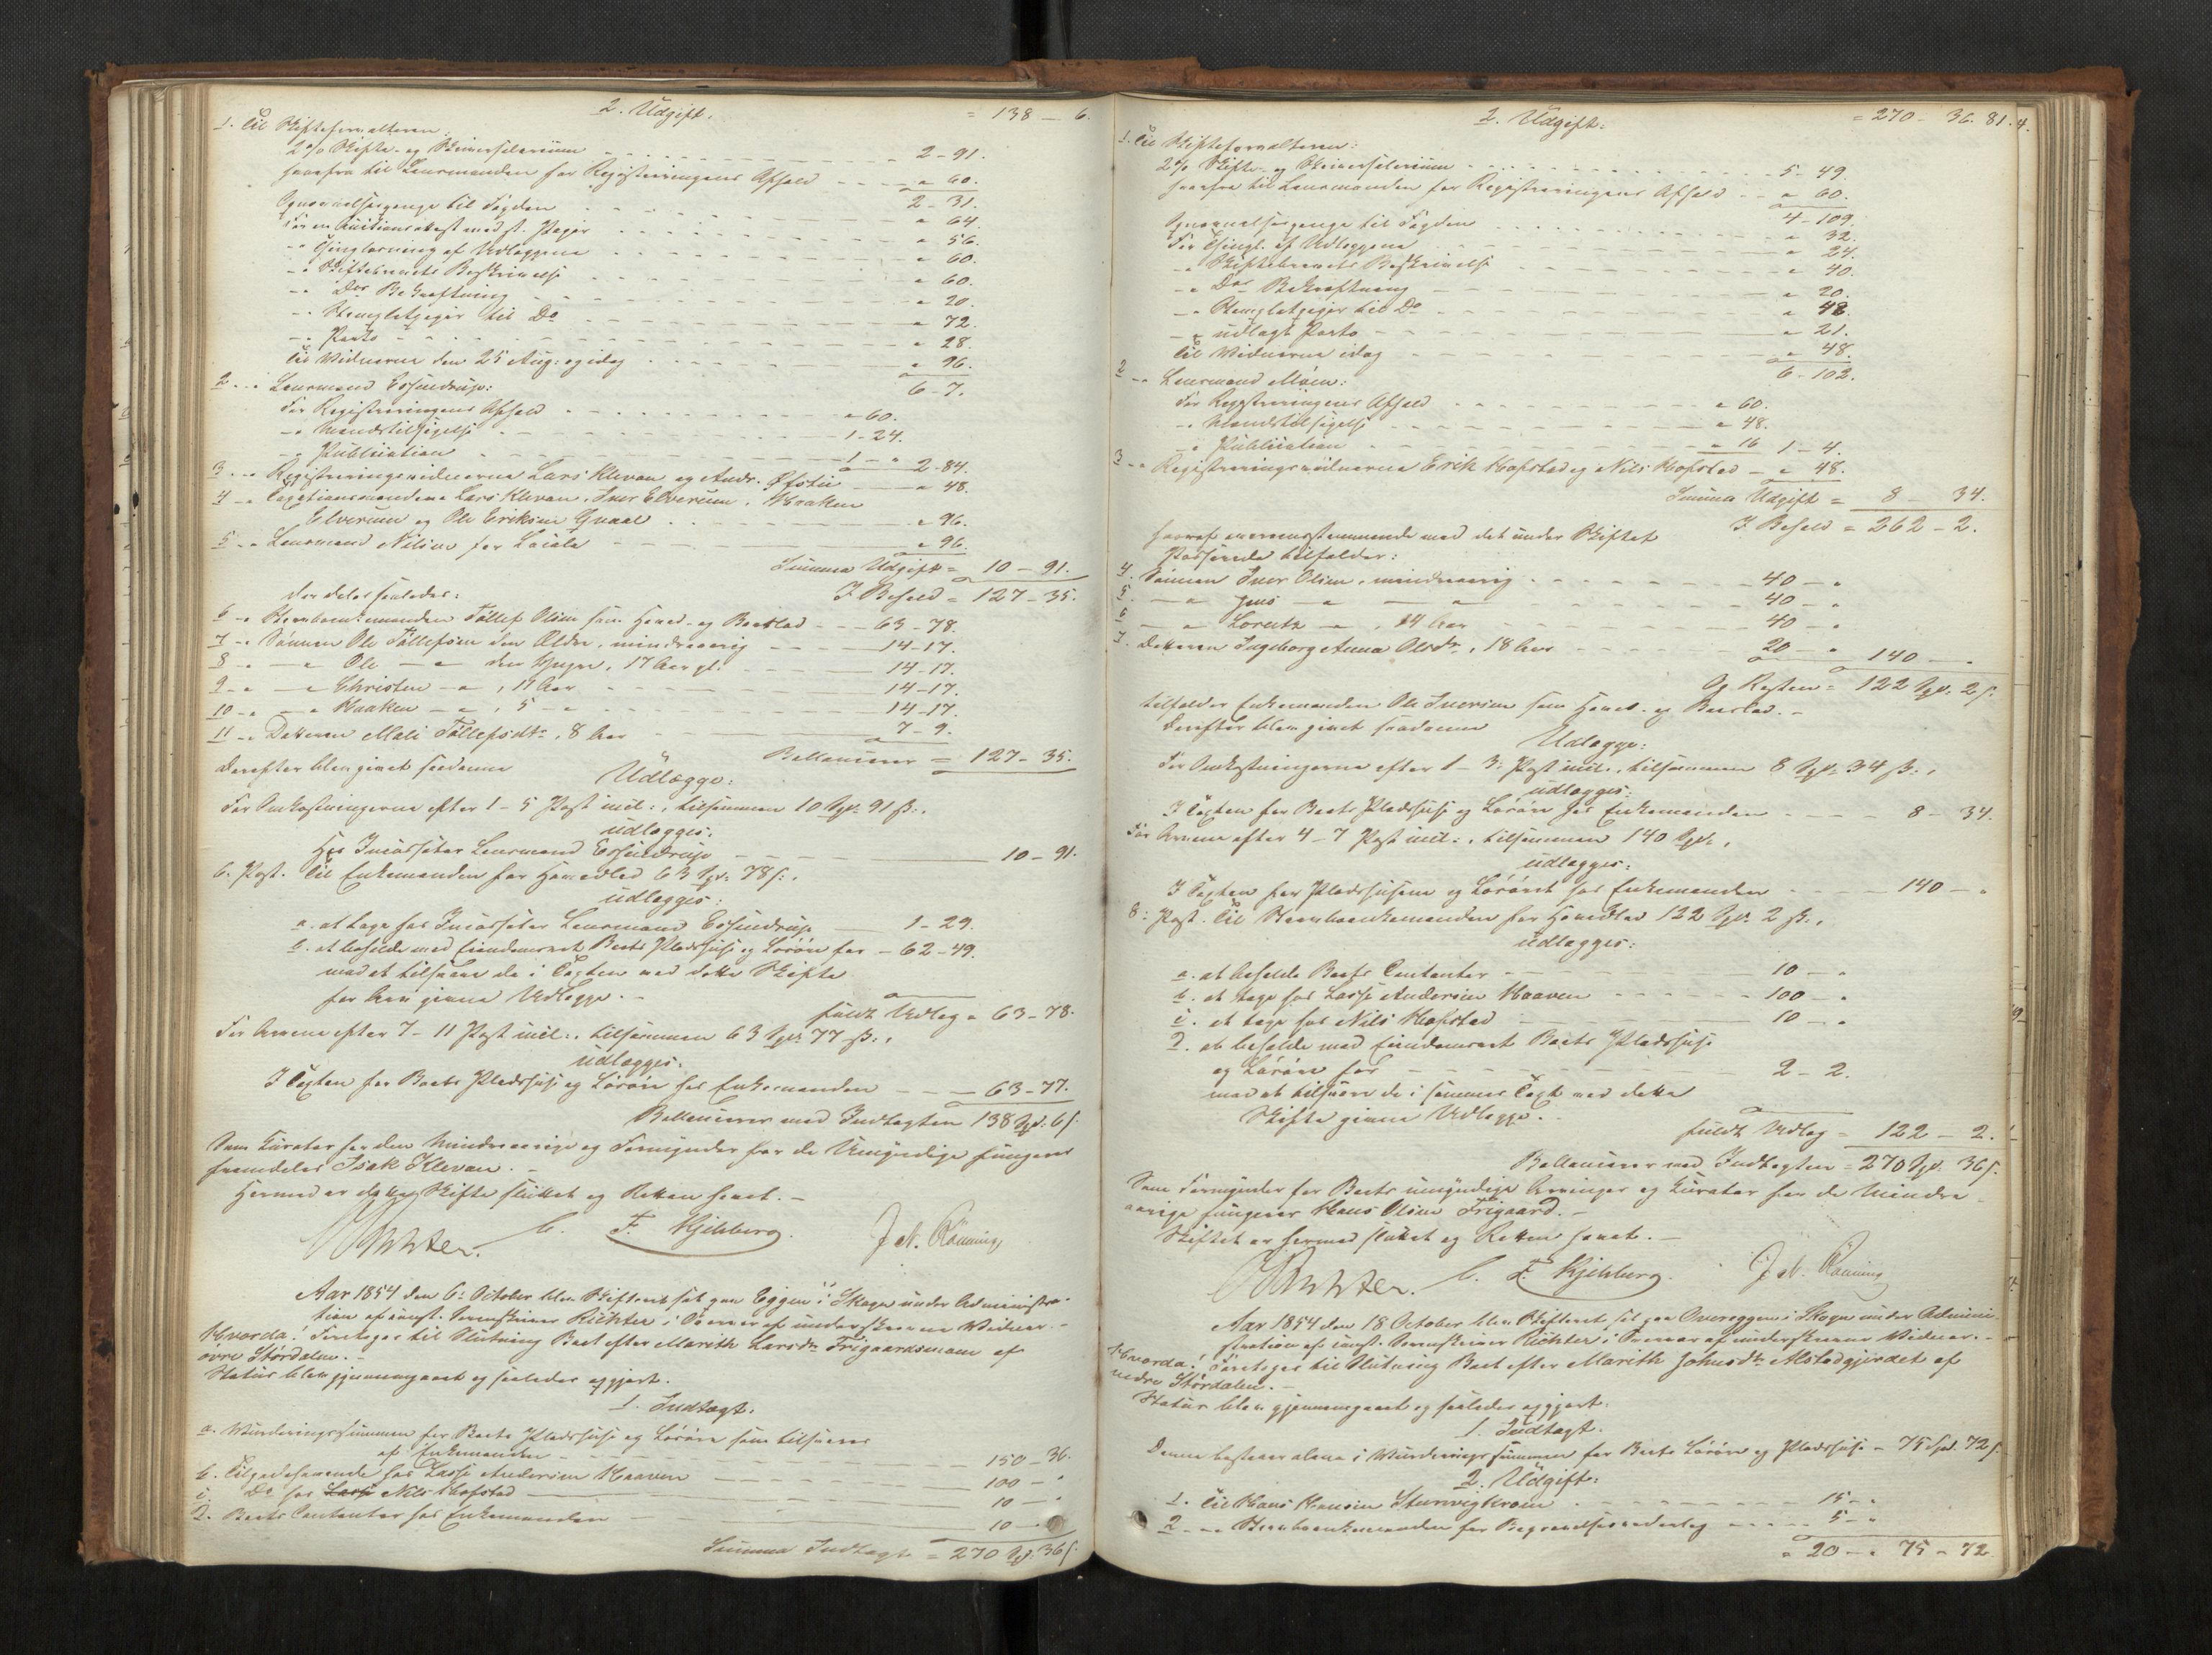 2. Udgift. = 138 — 6.
1. Til Skifteforvalteren:
2% Skifte- og Skriversalarium — 2-91.
herefra til Lensmanden for Registreringens Afhold — " 60.
2-31.
til Fogden — " 64.
For en Auctions med st. Papir — " 56.
-" Thinglæsning af Udlæggene — " 60.
-" Skiftebrevets Beskrivelse — " 60.
-" Dos Bekræftning — " 20.
-" Stemplet Papir til Do — " 72.
-" Porto — " 28.
Til Vidnerne den 25 Aug: og idag — " 96.
6-7.
2 -" Lensmand
For Registreringens Afhold — " 60.
-" Mandstilsigelse — 1-24.
-" Publication — 1 - " 2-84.
3 -" Registreringsvidnerne Lars Klevan og Andr. Øfstie — " 48.
4 -" Taxationsmændene Lars Klevan, Iver Elverum, Haaken
Elverum og Ole Eriksen Qvaal — " 96.
5 -" Lensmand Nilsen for — " 96.
Summa Udgift = 10-91.
I Behold = 127-35.
der deles saaledes:
6 -" Stervboenkemanden Tollef Olsen som Hoved- og Broderlod — 63-78.
7 -" Sønnen Ole Tollefsen den Ældre, mindreaarig — 14-17.
8 -" — " Ole — " den Yngre, 17 Aar gl. — 14-17.
9 -" — " Christen — ", 11 Aar — 14-17.
10 -" — " Haaken — ", 5 — " — 14-17.
11 -" Datteren Mali Tollefsdtr, 8 Aar — 7-9.
Ballancerer = 127-35.
Derefter blev givet saadanne
Udlægge:
For Omkostningerne efter 1-5 Post incl:, tilsammen 10 Spd. 91 ß:,
udlægges:
Hos Incassator Lensmand — 10-91.
6. Post. Til Enkemanden for Hovedlod 63 Spd. 78 ß:,
udlægges:
a. at tage hos Incassator Lensmand — 1-29.
b. at beholde med Eiendomsret Boets Pladshuse og Løsøre for — 62-49.
mod at tilsvare de i Taxten ved dette Skifte
for givne Udlægge. —
fuldt Udlæg = 63-78.
For Arvene efter 7-11 Post incl:, tilsammen 63 Spd 77 ß:,
udlægges:
I Taxten for Boets Pladshuse og Løsøre hos Enkemanden — 63-77.
Ballancerer med Indtægten 138 Spd. 6 ß
Som Curator for den Mindreaarige og Formynder for de Umyndige fungerer
fremdeles Isak Klevan. —
Hermed er dette Skifte sluttet og Retten hævet. —
Richter. C. F. Kjelberg. Joh. Rønning
Aar 1854 den 6te October blev Skifteret sat paa Eggen i Skogn under Administra-
tion af const. Sorenskriver Richter i Overvær af underskrevne Vidner. —
Hvorda: Foretoges til Slutning Boet efter Marith Larsdtr Frigaardsmoen af
øvre Størdalen. —
Status blev gjennemgaaet og saaledes opgjort.
1. Indtægt.
a. Vurderingssummen for Boets Pladshuse og Løsøre som tilsvares
af Enkemanden — 150-36.
b. Tilgodehavende hos Lasse Andersen Haaven — 100 — "
c. Do hos Lasse Nils Hofstad — 10 — "
d. Boets Contanter hos Enkemanden — 10 — "
Summa Indtægt = 270 Spd. 36 ß
2. Udgift = 270 — 36. 81.4.
1. Til Skifteforvalteren:
2% Skifte- og Skriversalarium — 5-49.
herefra til Lensmanden for Registreringens Afhold — " 60.
4-109.
til Fogden — " 32.
For Thingl. af Udlæggene — " 24.
-" Skiftebrevets Beskrivelse — " 40.
-" Dos Bekræftning — " 20.
-" Stempletpapir til Do — " 48.
-" udlagt Porto — " 21.
Til Vidnerne idag — " 48.
6-102.
2 -" Lensmand Moen:
For Registreringens Afhold — " 60.
-" Mandstilsigelse — " 48.
-" Publication — " 16 1-4.
3 -" Registreringsvidnerne Erik Hofstad og Nils Hofstad — " 48.
Summa Udgift = 8 — 34.
I Behold = 262-2.
hvoraf overensstemmende med det under Skiftet
Passerede tilfalder:
4. Sønnen Iver Olsen, mindreaarig — 40 — "
5. — " Jens — " — " — 40 — "
6. — " Lorents — ", 14 Aar — 40 — "
7. Datteren Ingeborg Anna Olsdtr, 18 Aar — 20 — " 140 — "
Og Resten = 122 Spd. 2 ß.
tilfalder Enkemanden Ole Iversen som Hoved- og Broderlod. —
Derefter blev givet saadanne
Udlægge:
For Omkostningerne efter 1-3: Post incl:, tilsammen 8 Spd. 34 ß:,
udlægges:
I Taxten for Boets Pladshuse og Løsøre hos Enkemanden — 8 — 34.
For Arvene efter 4-7 Post incl:, tilsammen 140 Spd:,
udlægges:
I Taxten for Pladshusene og Løsøret hos Enkemanden — 140 — "
8: Post. Til Stervboenkemanden for Hovedlod 122 Spd. 2 ß:,
udlægges:
a. at beholde Boets Contanter — 10 — "
b. at tage hos Lasse Andersen Haaven — 100 — "
c. at tage hos Nils Hofstad — 10 — "
d. at beholde med Eiendomsret Boets Pladshuse
og Løsøre for — 2-2.
mod at tilsvare de i sammes Taxt ved dette
Skifte givne Udlægge. —
fuldt Udlæg = 122 — 2.
Ballancerer med Indtægten = 270 Spd. 36 ß.
Som Formynder for Boets umyndige Arvinger og Curator for de Mindre-
aarige fungerer Hans Olsen Frigaard. —
Skiftet er hermed sluttet og Retten hævet. —
Richter. C. F. Kjelberg. Joh. Rønning
Aar 1854 den 18 October blev Skifteret sat paa Overeggen i Skogn under Admini-
stration af const. Sorenskriver Richter i Overvær af underskrevne Vidner. —
Hvorda: Foretoges til Slutning Boet efter Marith Johnsdtr Alstadgjerdet af
nedre Størdalen. —
Status blev gjennemgaaet og saaledes opgjort.
1. Indtægt.
Denne bestaaer alene i Vurderingssummen for Boets Løsøre og Pladshuse — 75 Spd. 72 ß
2. Udgift:
1. Til Hans Hansen — 15 — "
2 -" Stervboenkemanden for Begravelsesudlæg — 5 — "
" 20 — " 75 - 72.